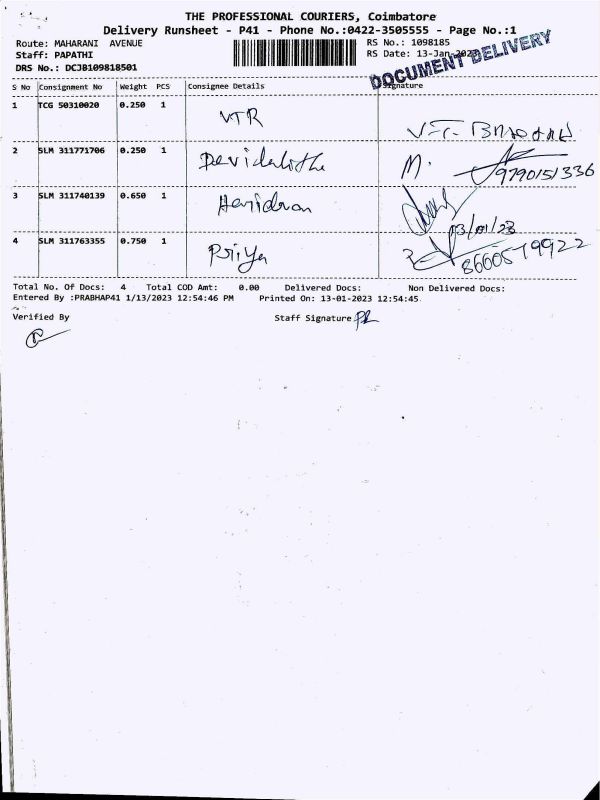 THE PROFESSIONAL COURIERS, Coimbatore
Delivery Runsheet - P41 - Phone No.:0422-3505555 - Page No.:1
Route: MAHARANI AVENUE RS No.: 1098185
Staff: PAPATHI RS Date: 13-Jan-2023
DRS No.: DCJB109818501
DOCUMENT DELIVERY
S No Consignment No Weight PCS Consignee Details Signature
1 TCG 50310020 0.250 1 VTR
2 SLM 311771706 0.250 1 M. 9790151336
3 SLM 311740139 0.650 1 13/01/23
4 SLM 311763355 0.750 1 Priya 8660579922
Total No. Of Docs: 4 Total COD Amt: 0.00 Delivered Docs: Non Delivered Docs:
Entered By :PRABHAP41 1/13/2023 12:54:46 PM Printed On: 13-01-2023 12:54:45
Verified By Staff Signature